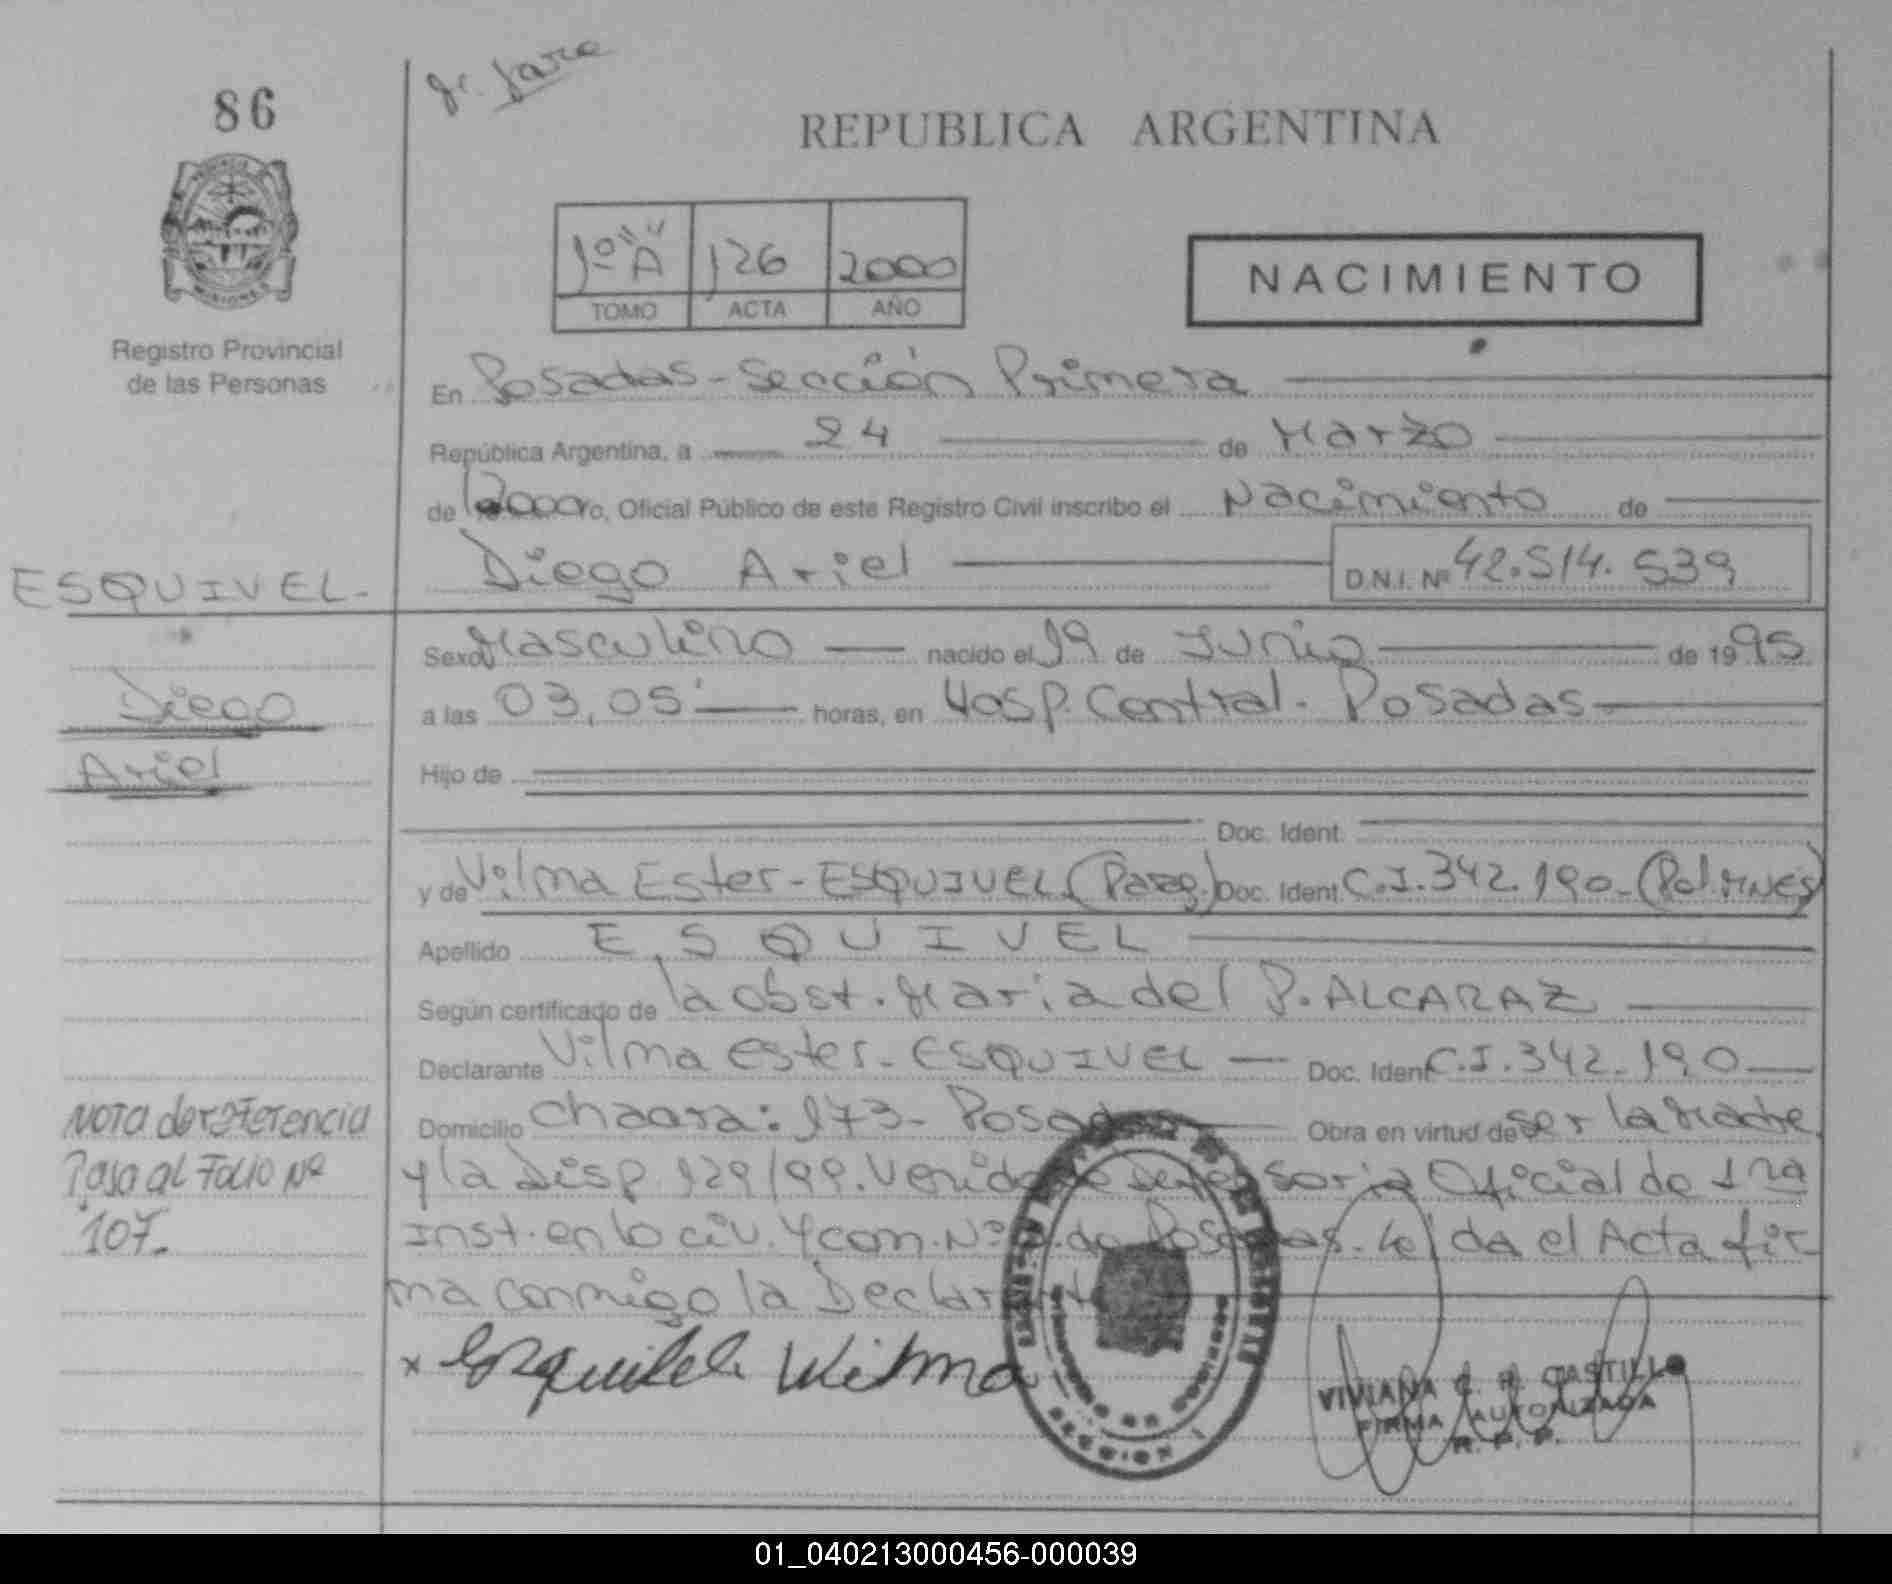 86
REPUBLICA ARGENTINA
1º "A" 126 2000
TOMO ACTA AÑO
NACIMIENTO
PROVINCIA DE MISIONES
Registro Provincial
de las Personas
En Posadas - Sección Primera
República Argentina, a 24 de Marzo
de 2000 yo, Oficial Público de este Registro Civil inscribo el Nacimiento de
Diego Ariel D.N.I. Nº 42.514.539
ESQUIVEL-
Diego
Ariel
Sexo Masculino nacido el 19 de Junio de 1995
a las 03,05' horas, en Hosp. Central. Posadas
Hijo de
Doc. Ident.
y de Vilma Ester - ESQUIVEL (Parag.) Doc. Ident. C.I. 342.190 - (Pol. MNES)
Apellido ESQUIVEL
Según certificado de la obst. Maria del P. ALCARAZ
Declarante Vilma Ester - ESQUIVEL Doc. Ident. C.I. 342.190
Domicilio Chacra: 173 - Posadas Obra en virtud de ser la Madre
y la Disp. 129/99. Venido Defensoria Oficial de 1ra
Inst. en lo civ. y com. Nº de Posadas. Leida el Acta fir
ma conmigo la Declarante
Nota de referencia
Pasa al Folio Nº
107.-
x Esquivel Wilma
VIVIANA CASTILLO
FIRMA AUTORIZADA
R. P. P.
01_040213000456-000039